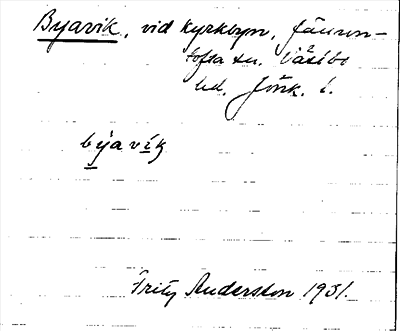 Byavik, vid kyrkbyn, Järsn-
tofta sn. Västbo
hd. Jönk. l.
byavík
Fritz Anderston 1931.